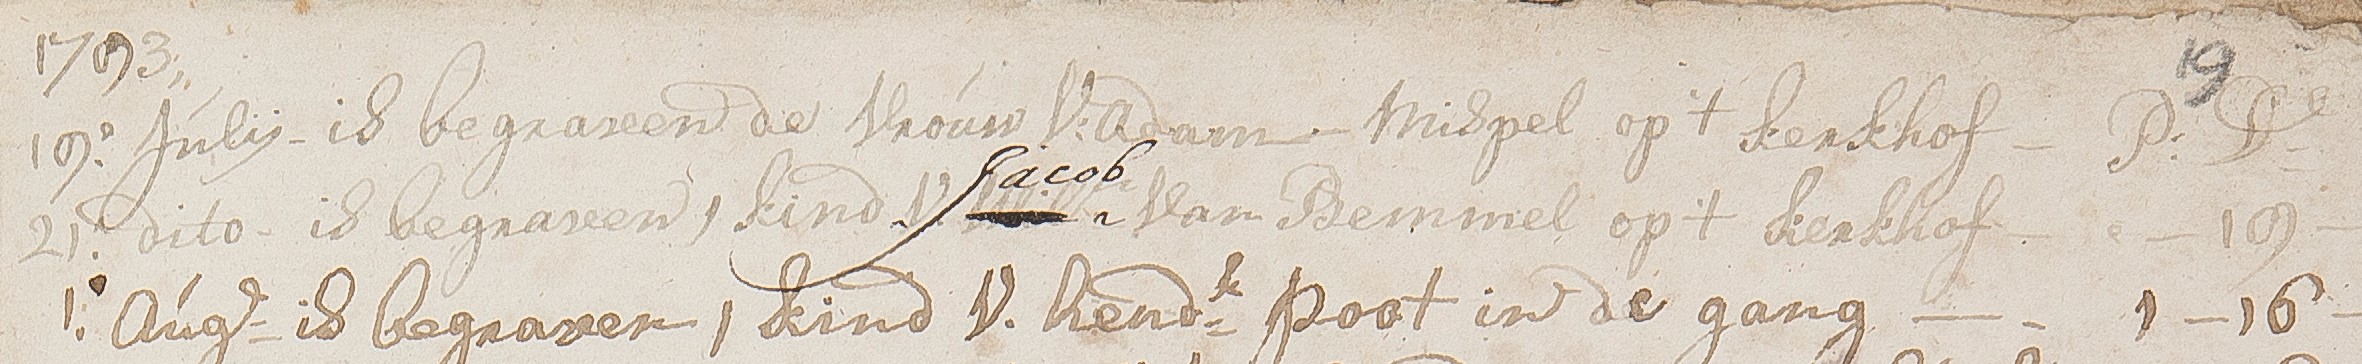 1793,, 19
19: Júlij - is begraven de Vroúw V: Adam - Mispel op 't kerkhof - P: De
Jacob
21: dito - is begraven 1 kind V: Van Bemmel op 't kerkhof - - 19 -
1: Aúgs - is begraven 1 kind V. hendk Poot in de gang - - 1 - 16 -